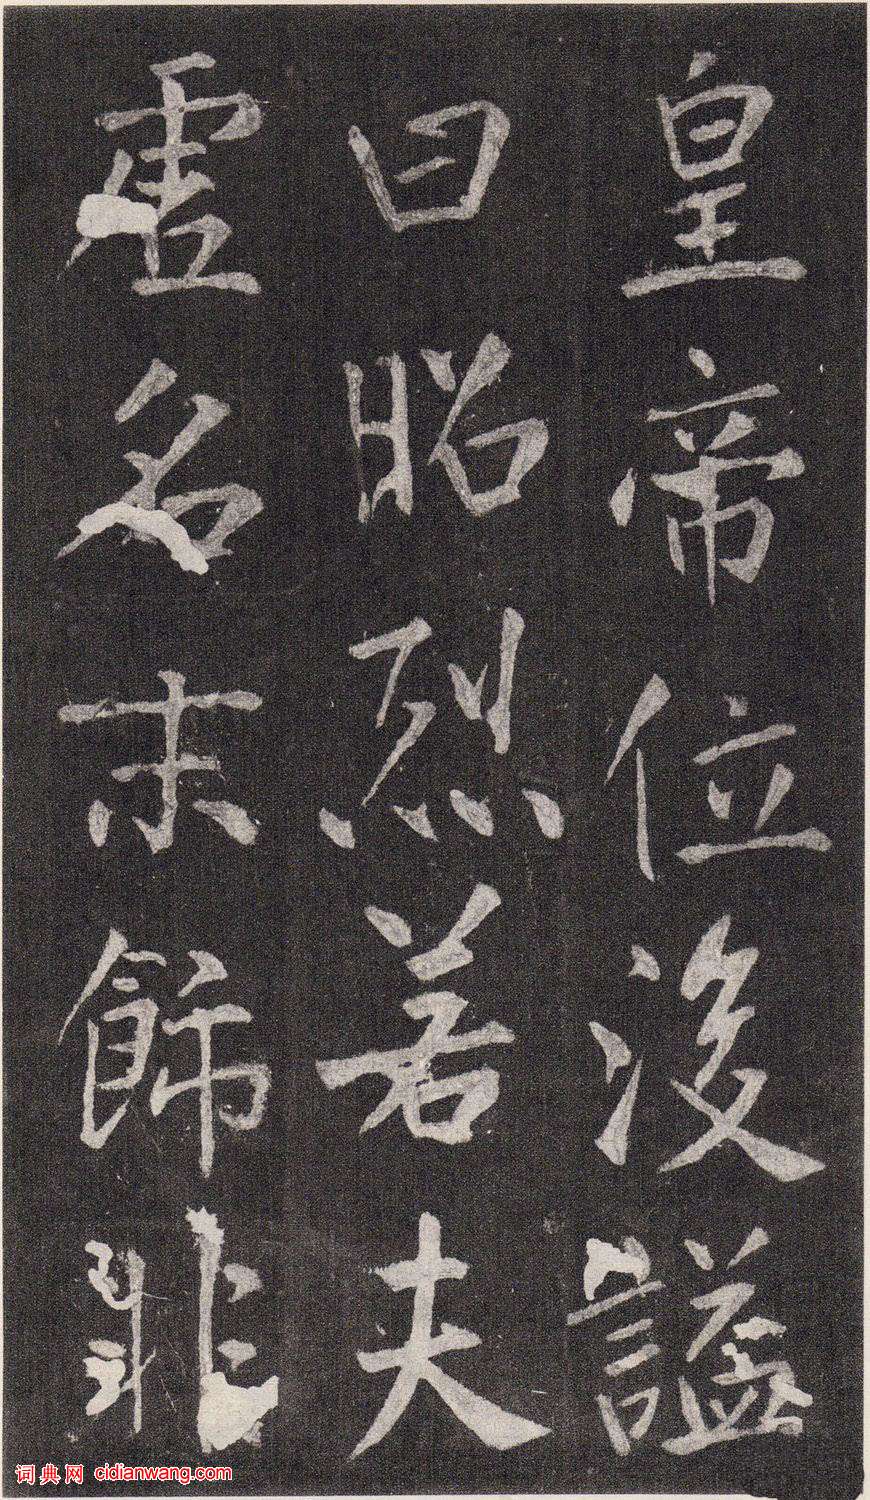 皇帝位後謚
曰昭烈若夫
虚名末飾非
词典网 cidianwang.com